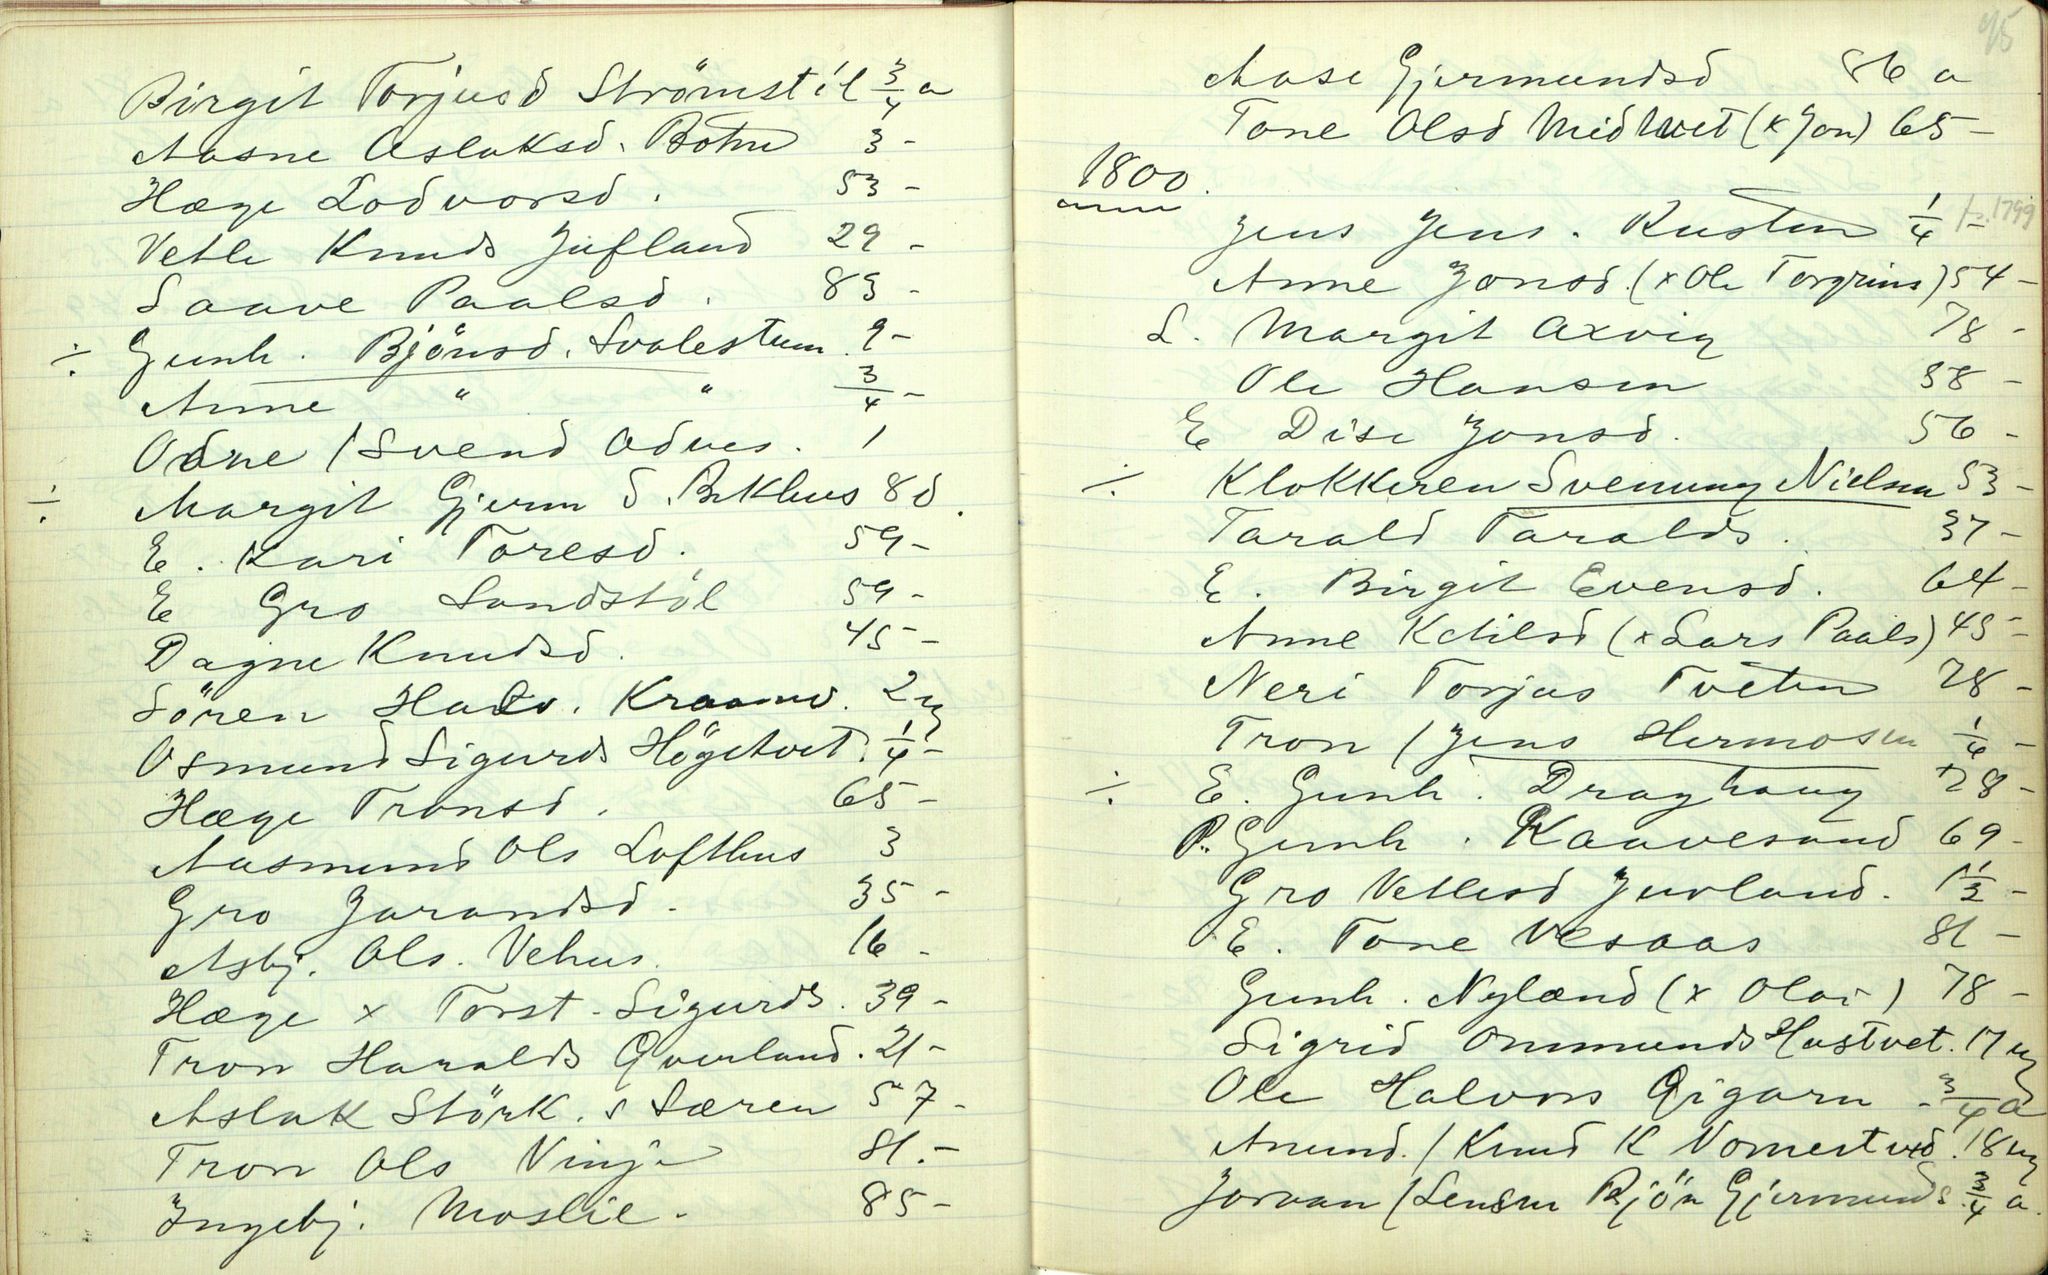 Birgit Torjusd Strömstöl 3/4 a
Aasne Aslaksd. Botn 3 -
Hæge Lodvorsd. 53 -
Vetle Knuds Jufland 29 -
Saave Paalsd. 83 -
÷ Gunh. Bjönsd. Svalestuen. 9 -
Anne " " 3/4 -
Odne / Svend Odnes. 1
÷ Margit Gjerm d. Bekhus 80.
E. Kari Toresd. 59 -
E Gro Sandstöl 59 -
Dagne Knudsd. 45 -
Sören Halv. Kraamv. 2 u
Osmund Sigurds Högetvet. 1/4 -
Hæge Tronsd. 65 -
Aasmund Ols Lofthus 3
Gro Jarandsd. 35 -
Asbj. Ols. Vehus. 16 -
Hæge x Torst. Sigurds. 39 -
Tron Haralds Qverland. 21 -
Aslak Störk. s Særen 57 -
Tron Ols Vinje 81. -
Ingebj. Moslie. 85 -
95
Aase Gjermundsd 86 a
Tone Olsd Midtvet (x Jon) 65 -
1800.
Jens Jens. Rusten 1/4 - f. 1799
Anne Jonsd. (x Ole Torgrims) 54 -
L. Margit Axvig 78 -
Ole Hansen 38 -
E Dise Jonsd. 56 -
÷ Klokkeren Svenung Nielsen 53 -
Tarald Taralds. 37 -
E. Birgit Evensd. 64 -
Anne Ketilsd (x Lars Paals) 45 -
Neri Torjus Tveten 78 -
Tron / Jens Hermosen 1/4 -
÷ E. Gunh. Draghaug 78 -
P. Gunh. Kaavesand 69 -
Gro Vetlesd Juvland. 1 1/2 -
E. Tone Vesaas 81 -
Gunh. Nylænd (x Olav) 78 -
Sigrid Ommunds Hustvet. 17 u
Ole Halvors Qigarn - 3/4 a
Anund. / Knud K Nomestved. 18 u
Jorvan / Lensm Björn Gjermunds. 3/4 a.